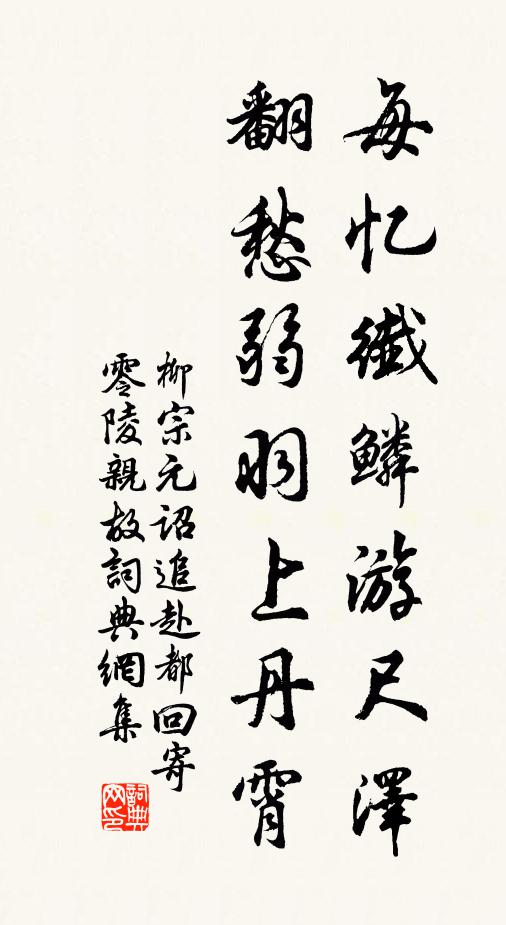 每忆纖鳞游尺澤
翻愁弱羽上丹霄
柳宗元詔追赴都回寄
零陵親故詞典網集
詞典
网印